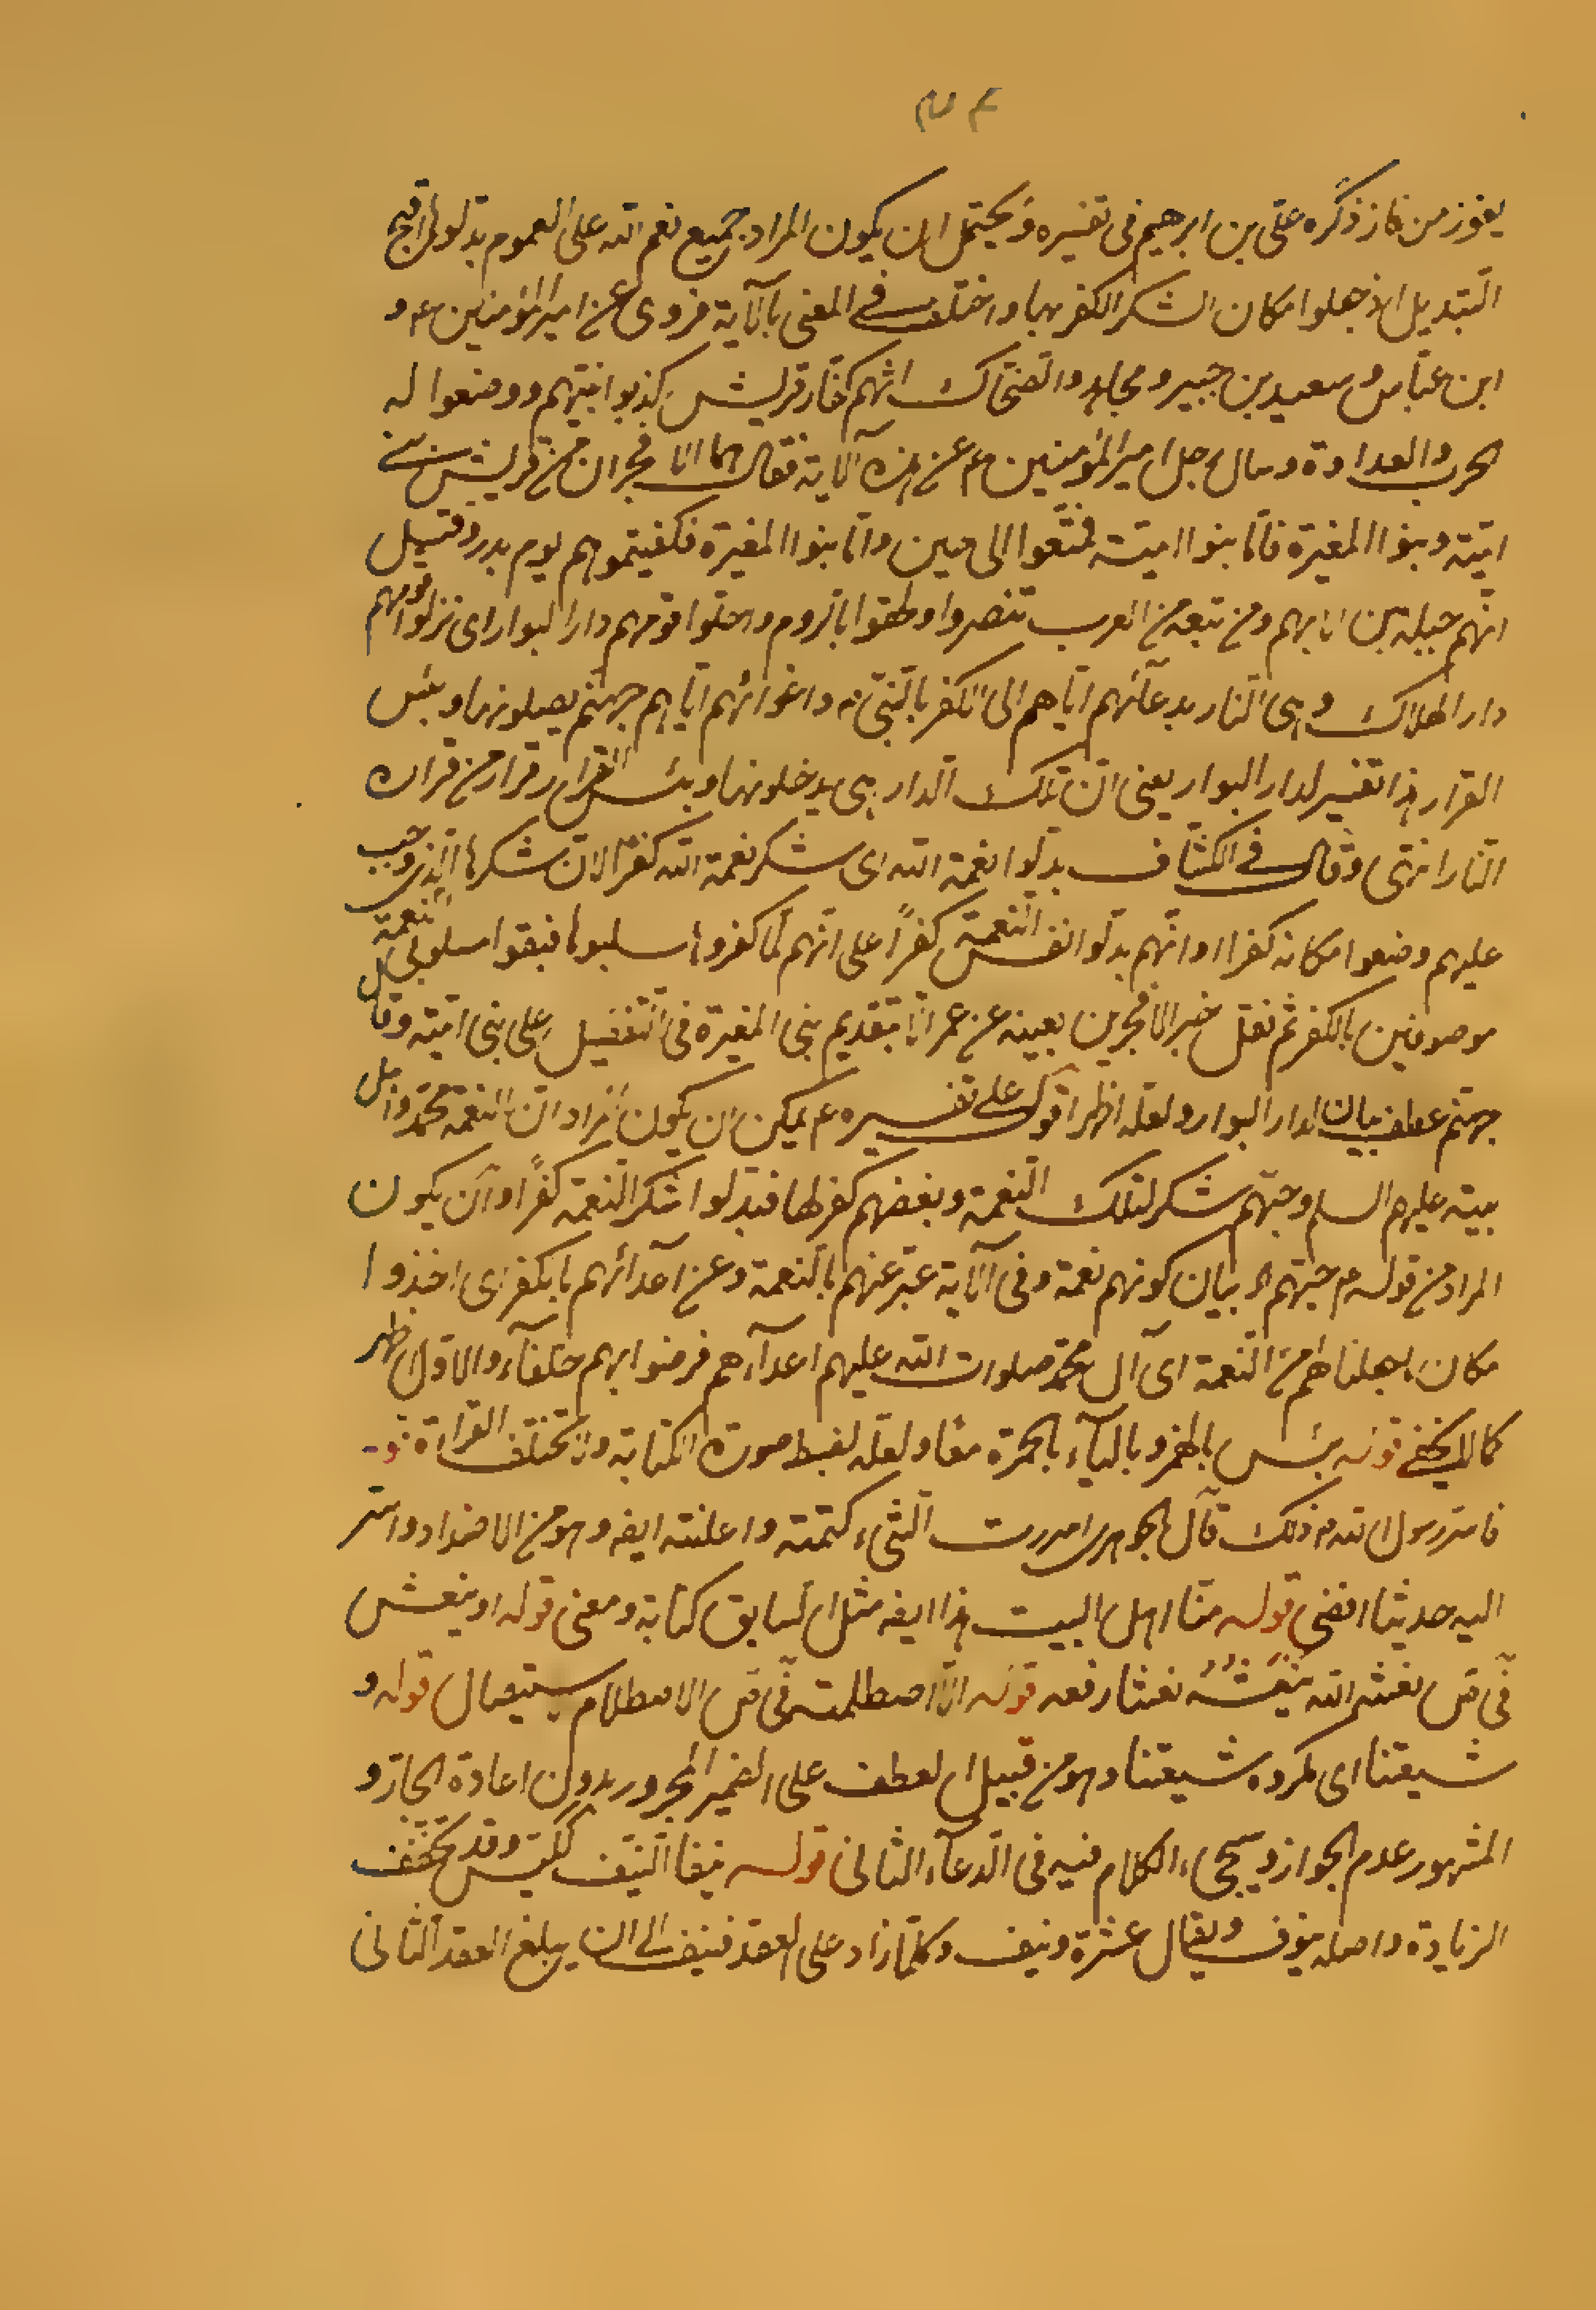 يفوز من فاز ذكره علي بن ابرهيم في تفسيره ويحتمل ان يكون المراد جميع نعم الله على العموم بدلوها اقبح
التبديل اذ جعلوا مكان الشكر الكفر بها واختلف في المعنى بالآية فروى عن امير المؤمنين ع و
ابن عباس وسعيد بن جبير ومجاهد والضحاك انهم كفار قريش كذبوا نبيهم ووضعوا له
الحرب والعداوة وسال رجل امير المؤمنين ع عن هذه الآية فقال هما الافجران من قريش بنو
امية وبنوا المغيرة فاما بنوا امية فمتعوا الى حين واما بنوا المغيرة فكفيتموهم يوم بدر وقيل
انهم جبلة بن الايهم ومن تبعه من العرب تنصروا ولحقوا بالروم واحلوا قومهم دار البوار اى نزلوا قومهم
دار الهلاك وهى النار بدعائهم اياهم الى الكفر بالنبي ص واغوائهم اياهم جهنم يصلونها وبئس
القرار هذا تفسير لدار البوار يعنى ان تلك الدار هى يدخلونها وبئس القرار قرار من قراره
النار انتهى وقال في الكشاف بدلوا نعمة الله اى شكر نعمة الله كفرا لان شكرها الذى وجب
عليهم وضعوا مكانه كفرا او انهم بدلوا نفس النعمة كفرًا على انهم لما كفروها سلبوها فبقوا مسلوبى النعمة
موصوفين بالكفر ثم نقل خبر الافجرين بعينه عن عمر الا بتقديم بنى المغيرة في التفصيل على بنى امية وقال
جهنم عطف بيان لدار البوار ولعله اظهر اقول على تفسيره ع يمكن ان يكون المراد ان النعمة محمد واهل
بيته عليهم السلم وحبهم شكر لتلك النعمة وبغضهم كفر لها فبدلوا شكر النعمة كفرًا وان يكون
المراد من قوله ع حبهم الخ بيان كونهم نعمة وفى الآية عبر عنهم بالنعمة وعن اعدائهم بالكفر اى اخذوا
مكان ما جعلنا لهم من النعمة اى آل محمد صلوات الله عليهم اعداءهم فرضوا بهم خلفاء والاول اظهر
كما لا يخفى قوله بئس بالهمز وبالياء بالحمرة معا ولعله لضبط صورة الكتابة والا تختلف القراءة قو-
فاسر رسول الله ص ذلك قال الجوهرى اسررت الشىء كتمته واعلنته ايضه وهو من الاضداد واسر
اليه حديثا افضى قوله منا اهل البيت هذا ايضه مثل السابق كتابة ومعنى قوله او ينعش
فى ص نعشه الله ينعشه نعشا رفعه قوله الا اصطلمته فى ص الاصطلام الاستيصال قوله و
شيعتنا اى مكروه شيعتنا وهو من قبيل العطف على الضمير المجرور بدون اعادة الجار و
المشهور عدم الجواز وسيجىء الكلام فيه فى الدعاء الثانى قوله نيفا النيف ككيس وقد يخفف
الزيادة واصله نيوف ويقال عشرة ونيف وكلما زاد على العقد فنيف الى ان يبلغ العقد الثانى